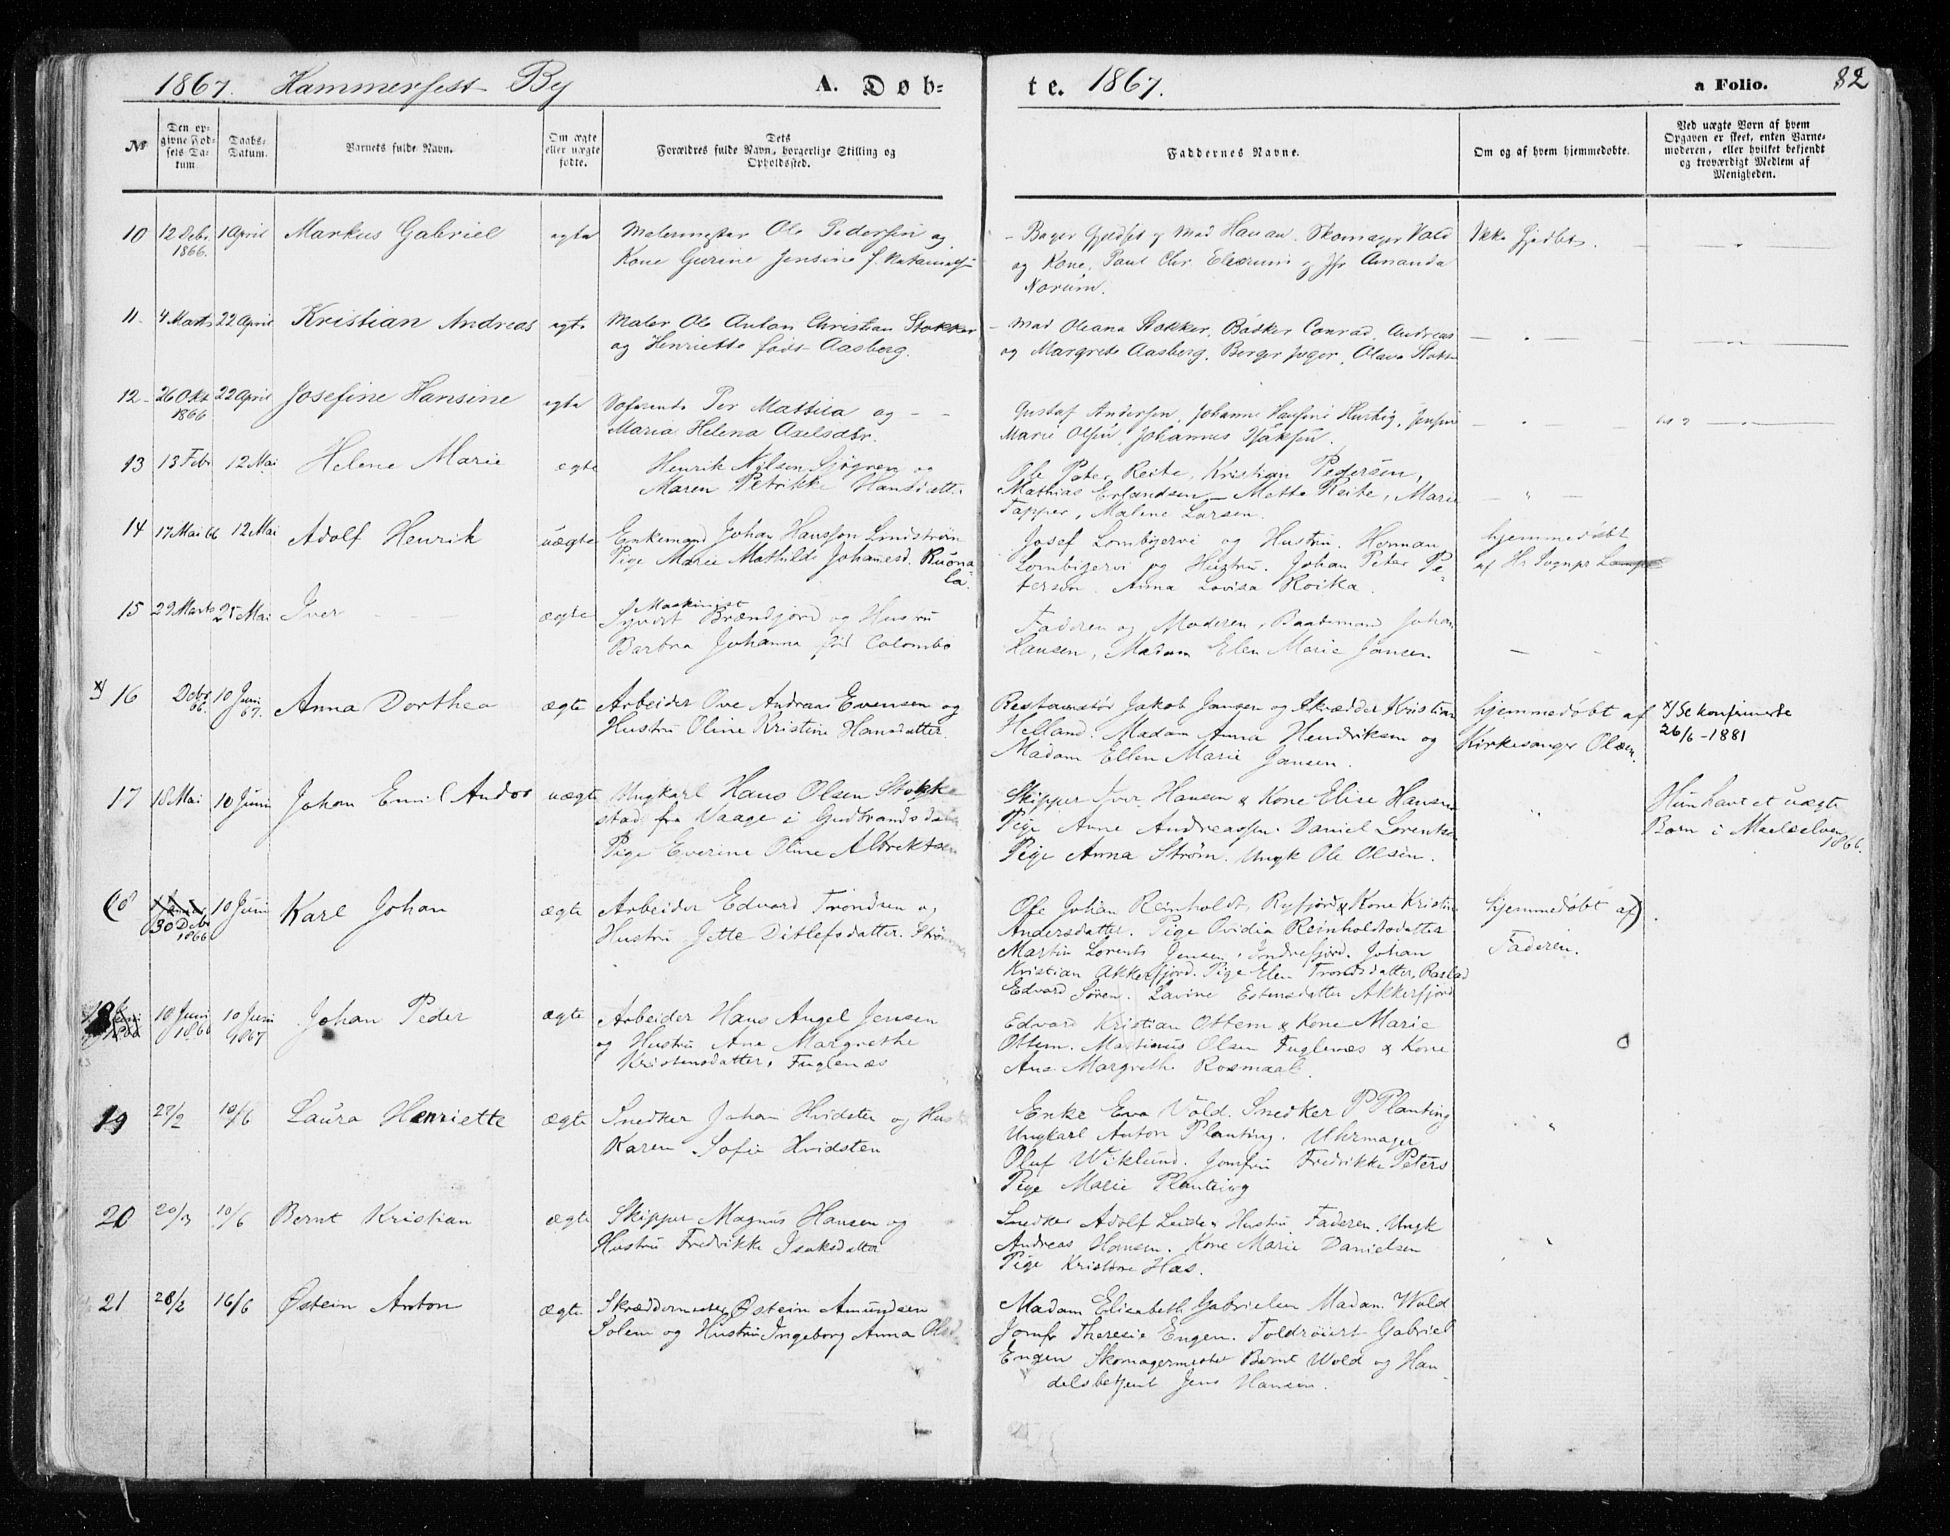 1867. Hammerfest By A. Døb=
te. 1867. a Folio. 82
№
Den op=
givne Fød=
sels Da=
tum.
Daabs=
Datum.
Barnets fulde Navn.
Om ægte
eller uægte
fødte.
Dets
Forældres fulde Navn, borgerlige Stilling og
Opholdssted.
Faddernes Navne.
Om og af hvem hjemmedøbte.
Ved uægte Born af hvem
Opgaven er skeet, enten Barne=
moderen, eller hvilket bekjendt
og troværdigt Medlem af
Menigheden.
10 12 Debr 1866. 1 April Markus Gabriel ægte
Malermester Ole Pedersen og
Kone Gurine Jensine f.
og Kone, Paul Chr. og Jfr Amanda
Norum.
Ikke hjdbt.
11 4 Marts 22 April Kristian Andreas ægte
Maler Ole Anton Christian Stokker
og Henriette født Aasberg.
Mad Oleana Stokker, Bødker Conrad, Andreas
og Margrete Aasberg, Borger Jæger, Olava
12 26 Okt 1866 22 April Josefine Hansine ægte
Per Mattila og
Maria Helena Axelsdtr.
Gustaf Andersen, Johanne Hansine Hustig,
Marie Olsen, Johannes Isaksen.
13 13 Febr 12 Mai Helene Marie ægte
Henrik Nilsen Sjøgren og
Maren Petrikke Hansdatter
Ole Peter Reite, Kristian Pedersen,
Mathias Erlandsen – Mette Reite, Marie
Tapper, Malene Larsen.
14 17 Mai 66 12 Mai Adolf Henrik uægte
Enkemand Johan Hansson Lindstrøm
Pige Marie Mathilde Johanesd. Ruona
la
Josef Lombijervi og Hustru. Herman
Lombijervi og Hustru. Johan Peter Pe-
tersen. Anna Lovisa Koitka.
hjemmedøbt
af Hr Sognpr
15 29 Marts 25 Mai Iver ægte
Maskinist
Syvert Brændfjord og Hustru
Barbra Johanna fød Colombo
Faderen og Moderen, Baadsmand Johan
Hansen, Madam Elen Marie Jansen
x) 16 Debr 66. 10 Juni 67. Anna Dorthea ægte
Arbeider Ove Andreas Evensen og
Hustru Oline Kristine Hansdatter.
Restauratør Jakob Jansen og Skrædder Kristian
Helland. Madam Anna Hendriksen og
Madam Ellen Marie Jansen.
hjemmedøbt af
Kirkesanger Olsen.
x) Se konfirmerte
26/6-1881
17 18 Mai 10 Juni Johan Emil Andor uægte
Ungkarl Hans Olsen
stad fra Vaage i Gudbrandsdalen
Pige Everine Oline Albrektsen
Skipper Iver Hansen & Kone Elise Hansen
Pige Anne Andreassen. Daniel Lorentsen
Pige Anna Strøm. Ungk Ole Olsen.
Hun havt et uægte
Barn i Maalselven
1866.
(18 30 Debr 1866 10 Juni Karl Johan ægte
Arbeider Edvard Trondsen og
Hustru Jette Ditlefsdatter.
Ole Johan Reinholdt, Ryfjord & Kone Kristine
Andersdatter. Pige Ovidia Reinholtsdatter
Martin Lorents Jensen, Indrefjord. Johan
Kristian Akkerfjord. Pige Elen Trondsdatter,
Edvard Søren. Lavine Estensdatter Akkerfjord
hjemmedøbt af).
Faderen.
10 Juni 1866 10 Juni 1867 Johan Peder ægte
Arbeider Hans Angel Jensen
og Hustru Ane Margrethe
Kristensdatter, Fuglenæs
Edvard Kristian Ottem & Kone Marie
Ottem. Martinus Olsen Fuglenæs & Kone
Ane Margrethe Rosmaal.
19 27/2 10/6 Laura Henriette ægte
Snedker Johan Hvidsten og Hustru
Karen Sofie Hvidsten
Enke Eva Vold. Snedker P Planting
Ungkarl Anton Planting. Uhrmager
Oluf Wiklund. Jomfru Fredrikke Peters
Pige Marie Planting
20 20/3 10/6 Bernt Kristian ægte
Skipper Magnus Hansen og
Hustru Fredrikke Isaksdatter
Snedker Adolf & Hustru. Faderen. Ungk
Andreas Hansen. Kone Marie Danielsen
Pige Kristine Has.
21 28/2 16/6 Østein Anton ægte
Skræddermester Østein Amundsen
Solem og Hustru Ingeborg Anna
Madam Elisabeth Gabrielsen Madam Wold
Jomfr Theresie Engen. Toldrøiert Gabriel
Engen Skomagermester Bernt Wold og Han-
delsbetjent Jens Hansen.